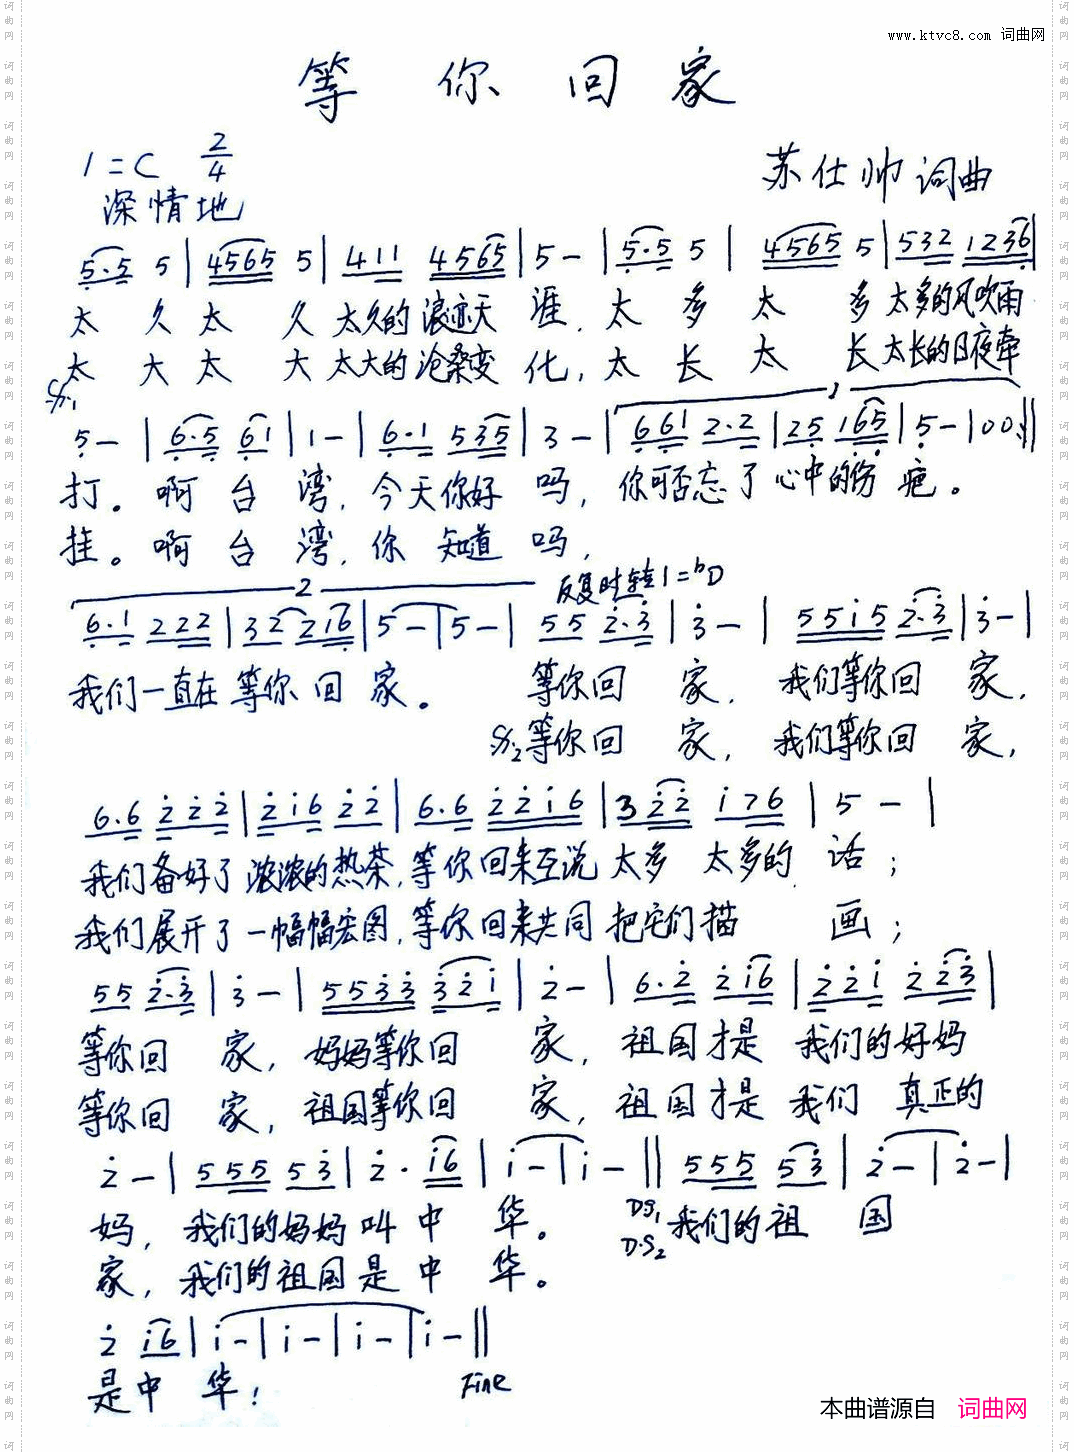 www.ktvc8.com 词曲网
等你回家
1=C 2/4
苏仕帅 词曲
深情地
5·5 5 | 4565 5 | 411 4565 | 5 - | 5·5 5 | 4565 5 | 532 1236 |
太 久 太 久 太久的浪迹天 涯，太 多 太 多 太多的风吹雨
太 大 太 大 太大的沧桑变 化，太 长 太 长 太长的日夜牵
5 - | 6·5 61 | 1 - | 6·1 535 | 3 - | 661 2·2 | 25 165 | 5 - | 00 :||
打。啊 台 湾，今天你好 吗，你可否忘了心中的伤 疤。
挂。啊 台 湾，你 知道 吗，
2
反复时转1=bD
6·1 222 | 32 216 | 5 - | 5 - | 55 2·3 | 3 - | 5515 2·3 | 3 - |
我们一直在等你 回 家。 等你回 家，我们等你回 家，
等你回 家，我们等你回 家，
6·6 222 | 216 22 | 6·6 2216 | 322 176 | 5 - |
我们备好了浓浓的热茶，等你回来互说 太多 太多的 话；
我们展开了一幅幅宏图，等你回来共同 把它们描 画；
55 2·3 | 3 - | 5533 321 | 2 - | 6·2 216 | 221 223 |
等你回 家，妈妈等你回 家，祖国才是 我们的好妈
等你回 家，祖国等你回 家，祖国才是 我们 真正的
2 - | 555 53 | 2· 16 | 1 - | 1 - || 555 53 | 2 - | 2 - |
妈，我们的妈妈叫 中 华。 D.S1 我们的祖 国
家，我们的祖国是 中 华。 D.S2
2 16 | 1 - | 1 - | 1 - | 1 - ||
是中 华！ Fine
本曲谱源自 词曲网